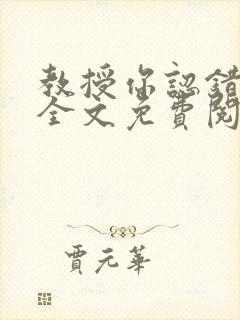 教授你認錯
全文免費閱
賈元華